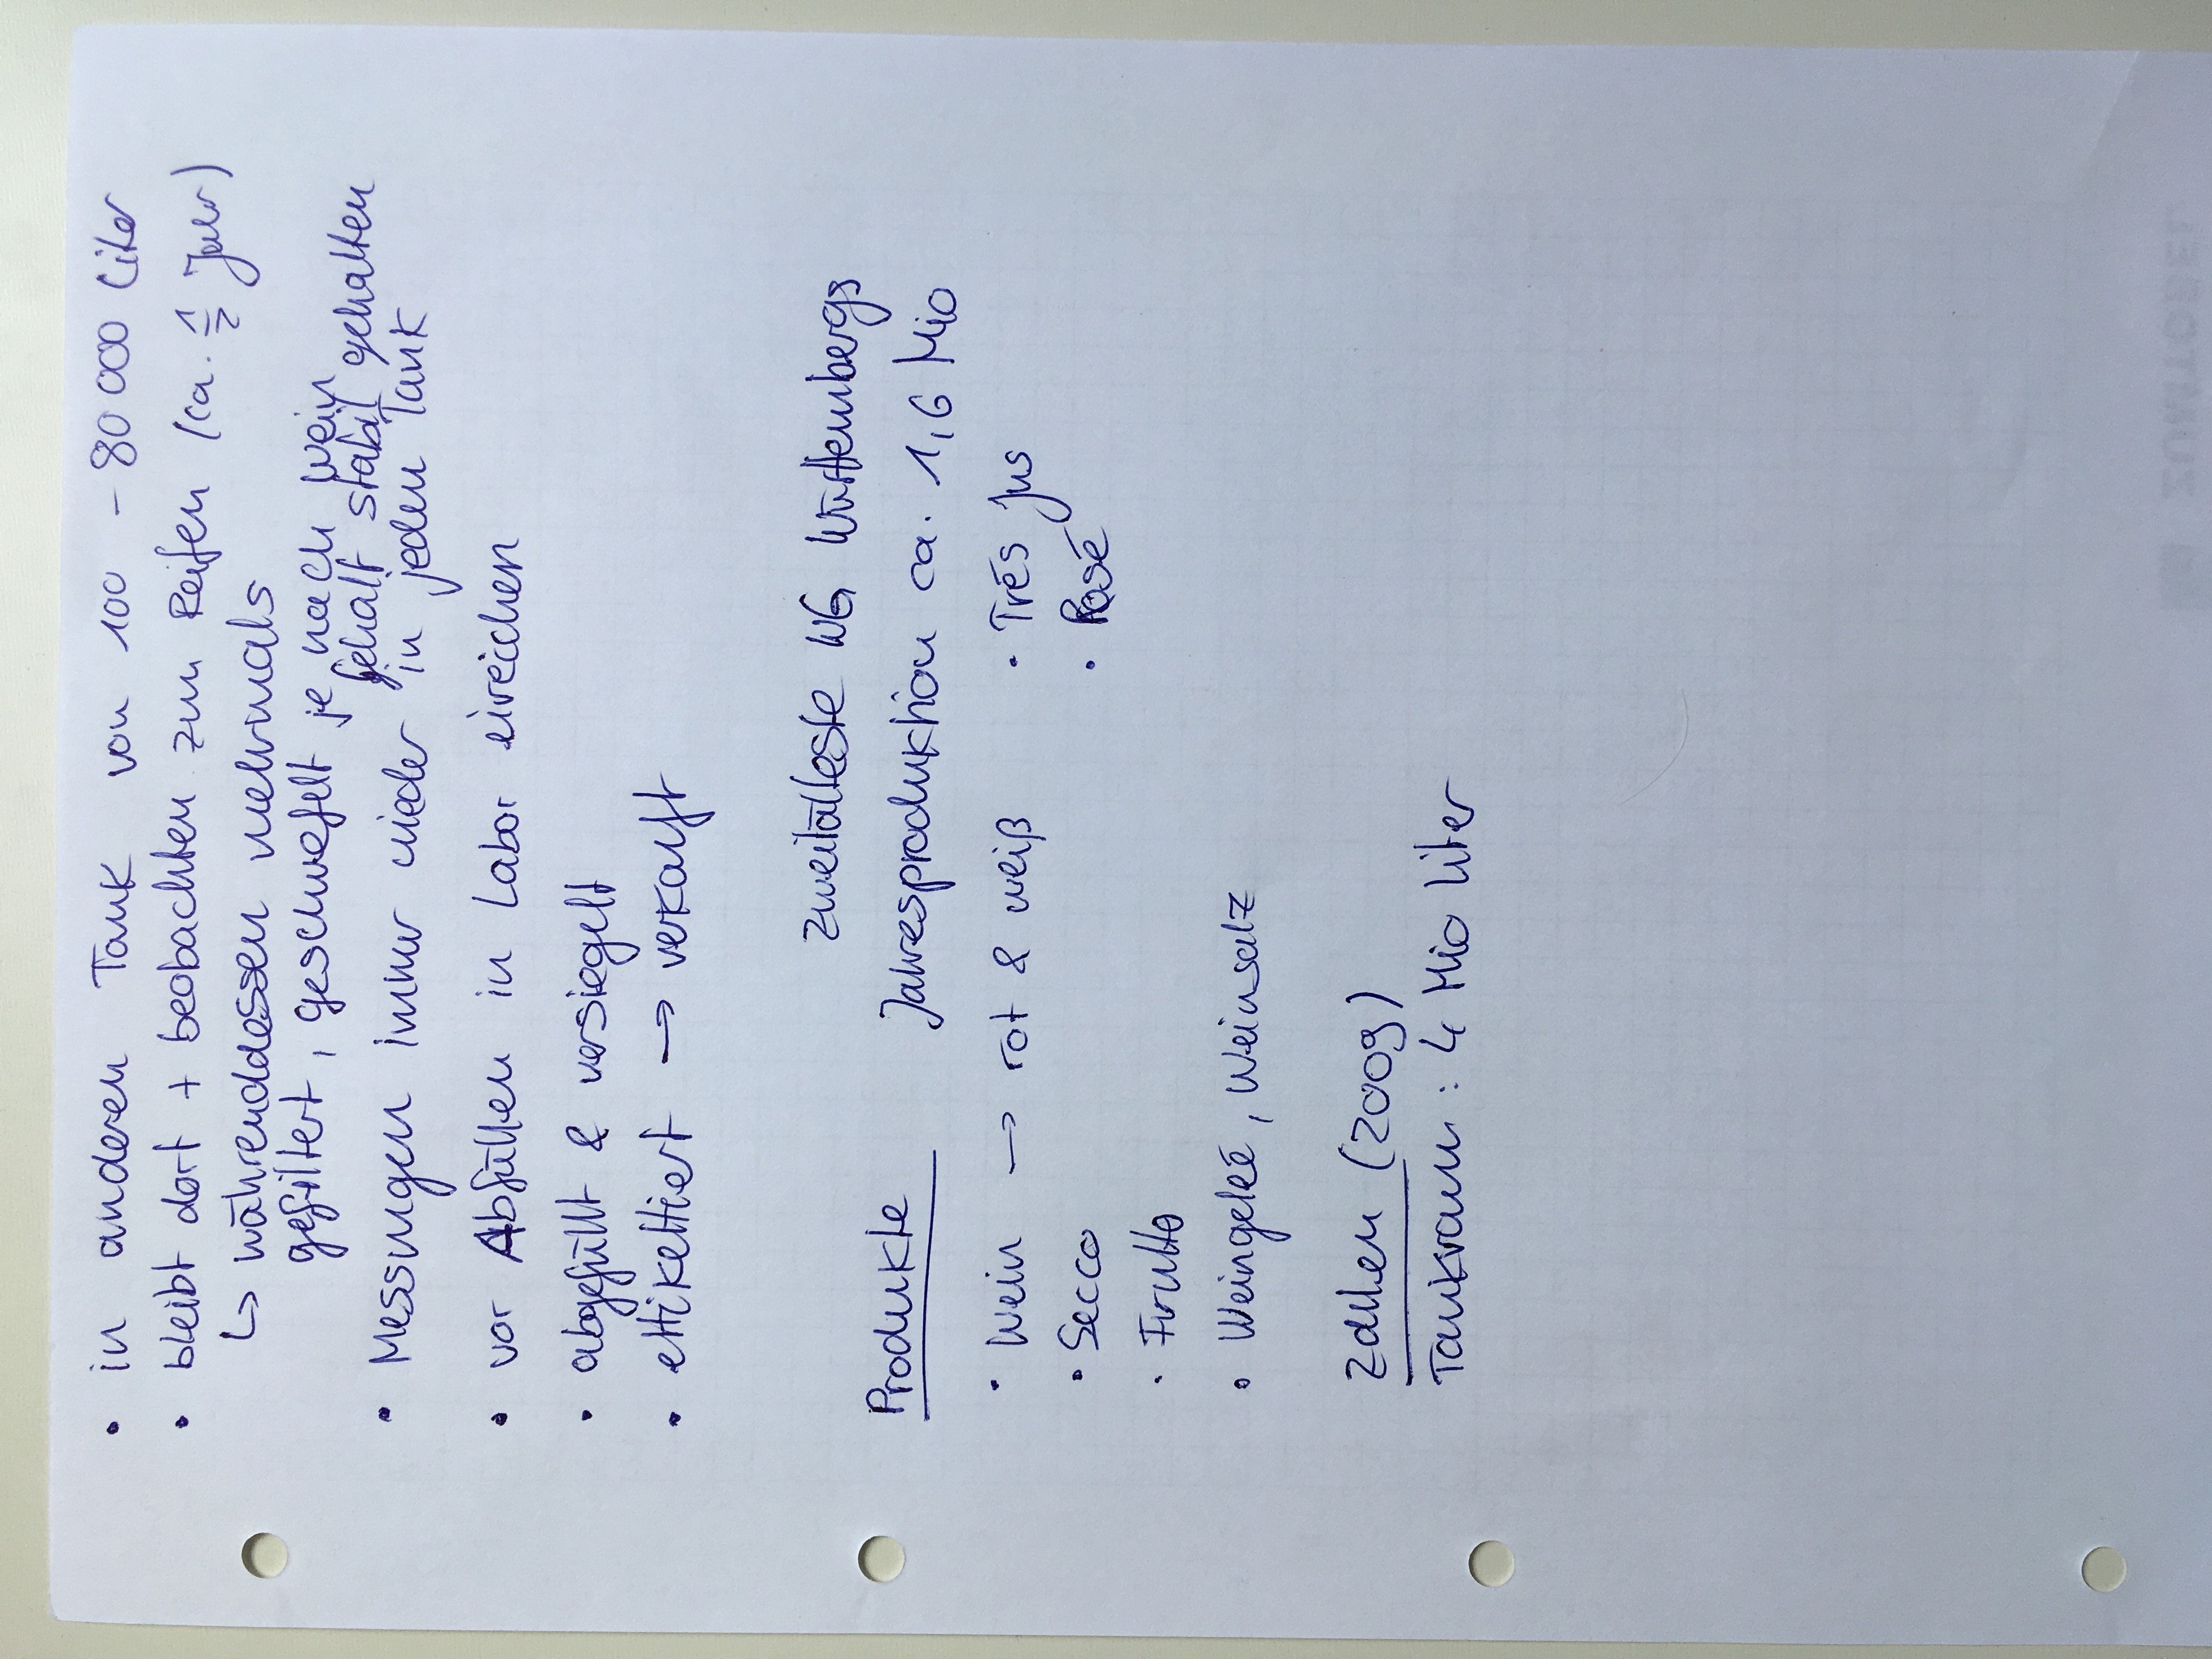 • in anderen Tank von 100 - 80 000 Liter
• bleibt dort + beobachten zum Reifen (ca. 1/2 Jahr)
↳ währenddessen mehrmals
gefiltert, geschwefelt je nach Wein
Gehalt stabil gehalten
• Messungen immer wieder in jedem Tank
• vor Abfüllen in Labor eireichen
• abgefüllt & versiegelt
• ettikettiert → verkauft
zweitälteste WG Württembergs
Produkte
Jahresproduktion ca. 1,6 Mio
• Wein → rot & weiß
• Trés Jus
• Secco
• Rosé
• Frutto
• Weingeleé, Weinsalz
Zahlen (2009)
Tankraum : 4 Mio Liter
ZUMTOBEL